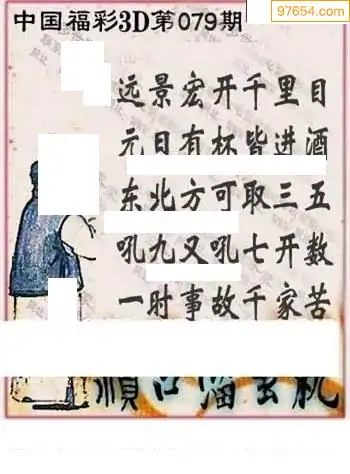 97654.com
中国福彩3D第079期
远景宏开千里目
元日有杯皆进酒
东北方可取三五
吼九又吼七开数
一时事故千家苦